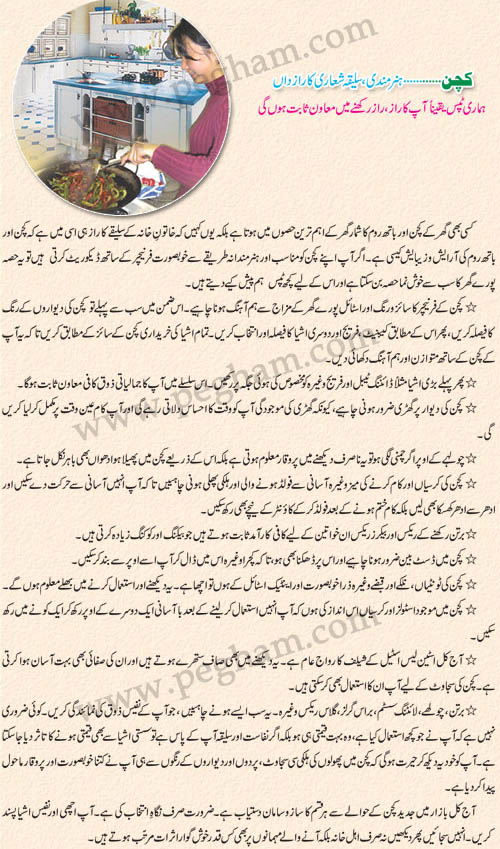 کچن ............ ہنرمندی، سلیقہ شعاری کا رازداں
ہماری ٹپس یقیناً آپ کا راز، راز رکھنے میں معاون ثابت ہوں گی
www.pegham.com
کسی بھی گھر کے کچن اور باتھ روم کا شمار گھر کے اہم ترین حصوں میں ہوتا ہے بلکہ یوں کہیں کہ خاتونِ خانہ کے سلیقے کا راز ہی اسی میں ہے کہ کچن اور
باتھ روم کی آرایش و زیبایش کیسی ہے۔ اگر آپ اپنے کچن کو مناسب اور ہنرمندانہ طریقے سے خوبصورت فرنیچر کے ساتھ ڈیکوریٹ کرتی ہیں تو یہ حصہ
پورے گھر کا سب سے خوش نما حصہ بن سکتا ہے اور اس کے لیے کچھ ٹپس ہم پیش کیے دیتے ہیں۔
☆ کچن کے فرنیچر کا سائز ورنگ اور اسٹائل پورے گھر کے مزاج سے ہم آہنگ ہونا چاہیے۔ اس ضمن میں سب سے پہلے تو کچن کی دیواروں کے رنگ
کا فیصلہ کریں، پھر اس کے مطابق کیبنیٹ، فریج اور دوسری اشیا کا فیصلہ اور انتخاب کریں۔ تمام اشیا کی خریداری کچن کے سائز کے مطابق کریں تاکہ یہ آپ
کے کچن کے ساتھ متوازن اور ہم آہنگ دکھائی دیں۔
☆ پھر پہلے بڑی اشیا مثلاً ڈائننگ ٹیبل اور فریج وغیرہ کو مخصوص کی ہوئی جگہ پر رکھیں۔ اس سلسلے میں آپ کا جمالیاتی ذوق کافی معاون ثابت ہوگا۔
☆ کچن کی دیوار پر گھڑی ضرور ہونی چاہیے، کیونکہ گھڑی کی موجودگی آپ کو وقت کا احساس دلاتی رہے گی اور آپ کام عین وقت پر مکمل کر لیا کریں
گی۔
☆ چولہے کے اوپر اگر چمنی لگی ہو تو یہ نا صرف دیکھنے میں پروقار معلوم ہوتی ہے بلکہ اس کے ذریعے کچن میں پھیلا ہوا دھواں بھی باہر نکل جاتا ہے۔
☆ کچن کی کرسیاں اور کام کرنے کی میز وغیرہ آسانی سے فولڈ ہونے والی اور ہلکی پھلکی ہونی چاہییں تاکہ آپ انہیں آسانی سے حرکت دے سکیں اور
ادھر سے ادھر کھسکا بھی لیں بلکہ کام ختم ہونے کے بعد فولڈ کر کے کاؤنٹر کے نیچے بھی رکھ سکیں۔
☆ برتن رکھنے کے ریکس اور بیکرز ریکس ان خواتین کے لیے کافی کارآمد ثابت ہوتے ہیں جو بیکنگ اور کوکنگ زیادہ کرتی ہیں۔
☆ کچن میں ڈسٹ بین ضرور ہونا چاہیے اور اس پر ڈھکنا بھی ہو، تا کہ کچرا وغیرہ اس میں ڈال کر آپ اسے اوپر سے بند کر سکیں۔
☆ کچن کی ٹونٹیاں، نلکے اور قبضے وغیرہ ذرا خوبصورت اور اینٹیک اسٹائل کے ہوں تو اچھا ہے۔ یہ دیکھنے اور استعمال کرنے میں بھلے معلوم ہوں گے۔
☆ کچن میں موجود اسٹولز اور کرسیاں اس انداز کی ہوں کہ آپ انہیں استعمال کر لینے کے بعد با آسانی ایک دوسرے کے اوپر رکھ کر ایک کونے میں رکھ
سکیں۔
☆ آج کل اسٹین لیس اسٹیل کے شیلف کا رواج عام ہے۔ یہ دیکھنے میں بھی صاف ستھرے ہوتے ہیں اور ان کی صفائی بھی بہت آسان ہوا کرتی
ہے۔ کچن کی سجاوٹ کے لیے آپ ان کا استعمال بھی کر سکتی ہیں۔
☆ برتن، چولھے، لائٹنگ سسٹم، براس گرلز، گلاس ریکس وغیرہ۔ یہ سب ایسے ہونے چاہییں، جو آپ کے نفیس ذوق کی نمائندگی کریں۔ کوئی ضروری
نہیں ہے کہ آپ نے جو کچھ استعمال کیا ہے، وہ بہت قیمتی ہی ہو بلکہ اگر نفاست اور سلیقہ آپ کے پاس ہے تو سستی اشیا سے بھی قیمتی ہونے کا تاثر دیا جا سکتا
ہے۔ آپ کو خود یہ دیکھ کر حیرت ہوگی کہ کچن میں پھولوں کی ہلکی سی سجاوٹ، پردوں اور دیواروں کے رنگوں سے ہی آپ نے کتنا خوبصورت اور پروقار ماحول
پیدا کر دیا ہے۔
آج کل بازار میں جدید کچن کے حوالے سے ہر قسم کا ساز و سامان دستیاب ہے۔ ضرورت صرف نگاہِ انتخاب کی ہے۔ آپ اچھی اور نفیس اشیا پسند
کریں۔ انہیں سجائیں پھر دیکھیں نہ صرف اہل خانہ بلکہ آنے والے مہمانوں پر بھی کس قدر خوش گوار اثرات مرتب ہوتے ہیں۔
www.pegham.com
www.pegham.com
www.pegham.com